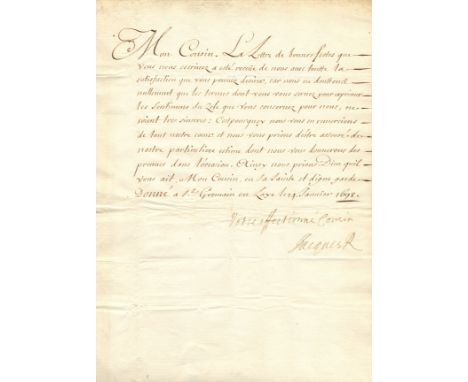 Mon Cousin. La Lettre de bonnes festes que
vous nous escrivez a esté receüe de nous avec toutte la
satisfaction que vous pouviez desirer, car nous ne douttons
nullement que les termes dont vous vous servez pour exprimer
les sentimens du zele que vous conservez pour nous, ne
soient tres sinceres; C'estpourquoy nous vous en remercions
de tout notre coeur et nous vous prions d'estre asseuré de
nostre particuliere estime dont nous vous donnerons des
preuves dans l'occasion. Ainsy nous prions Dieu qu'il
vous ait, Mon Cousin, en sa sainte et digne garde
Donné à St. Germain en Laye le 24 Janvier 1698.
Votre affectionné Cousin
Jacques R